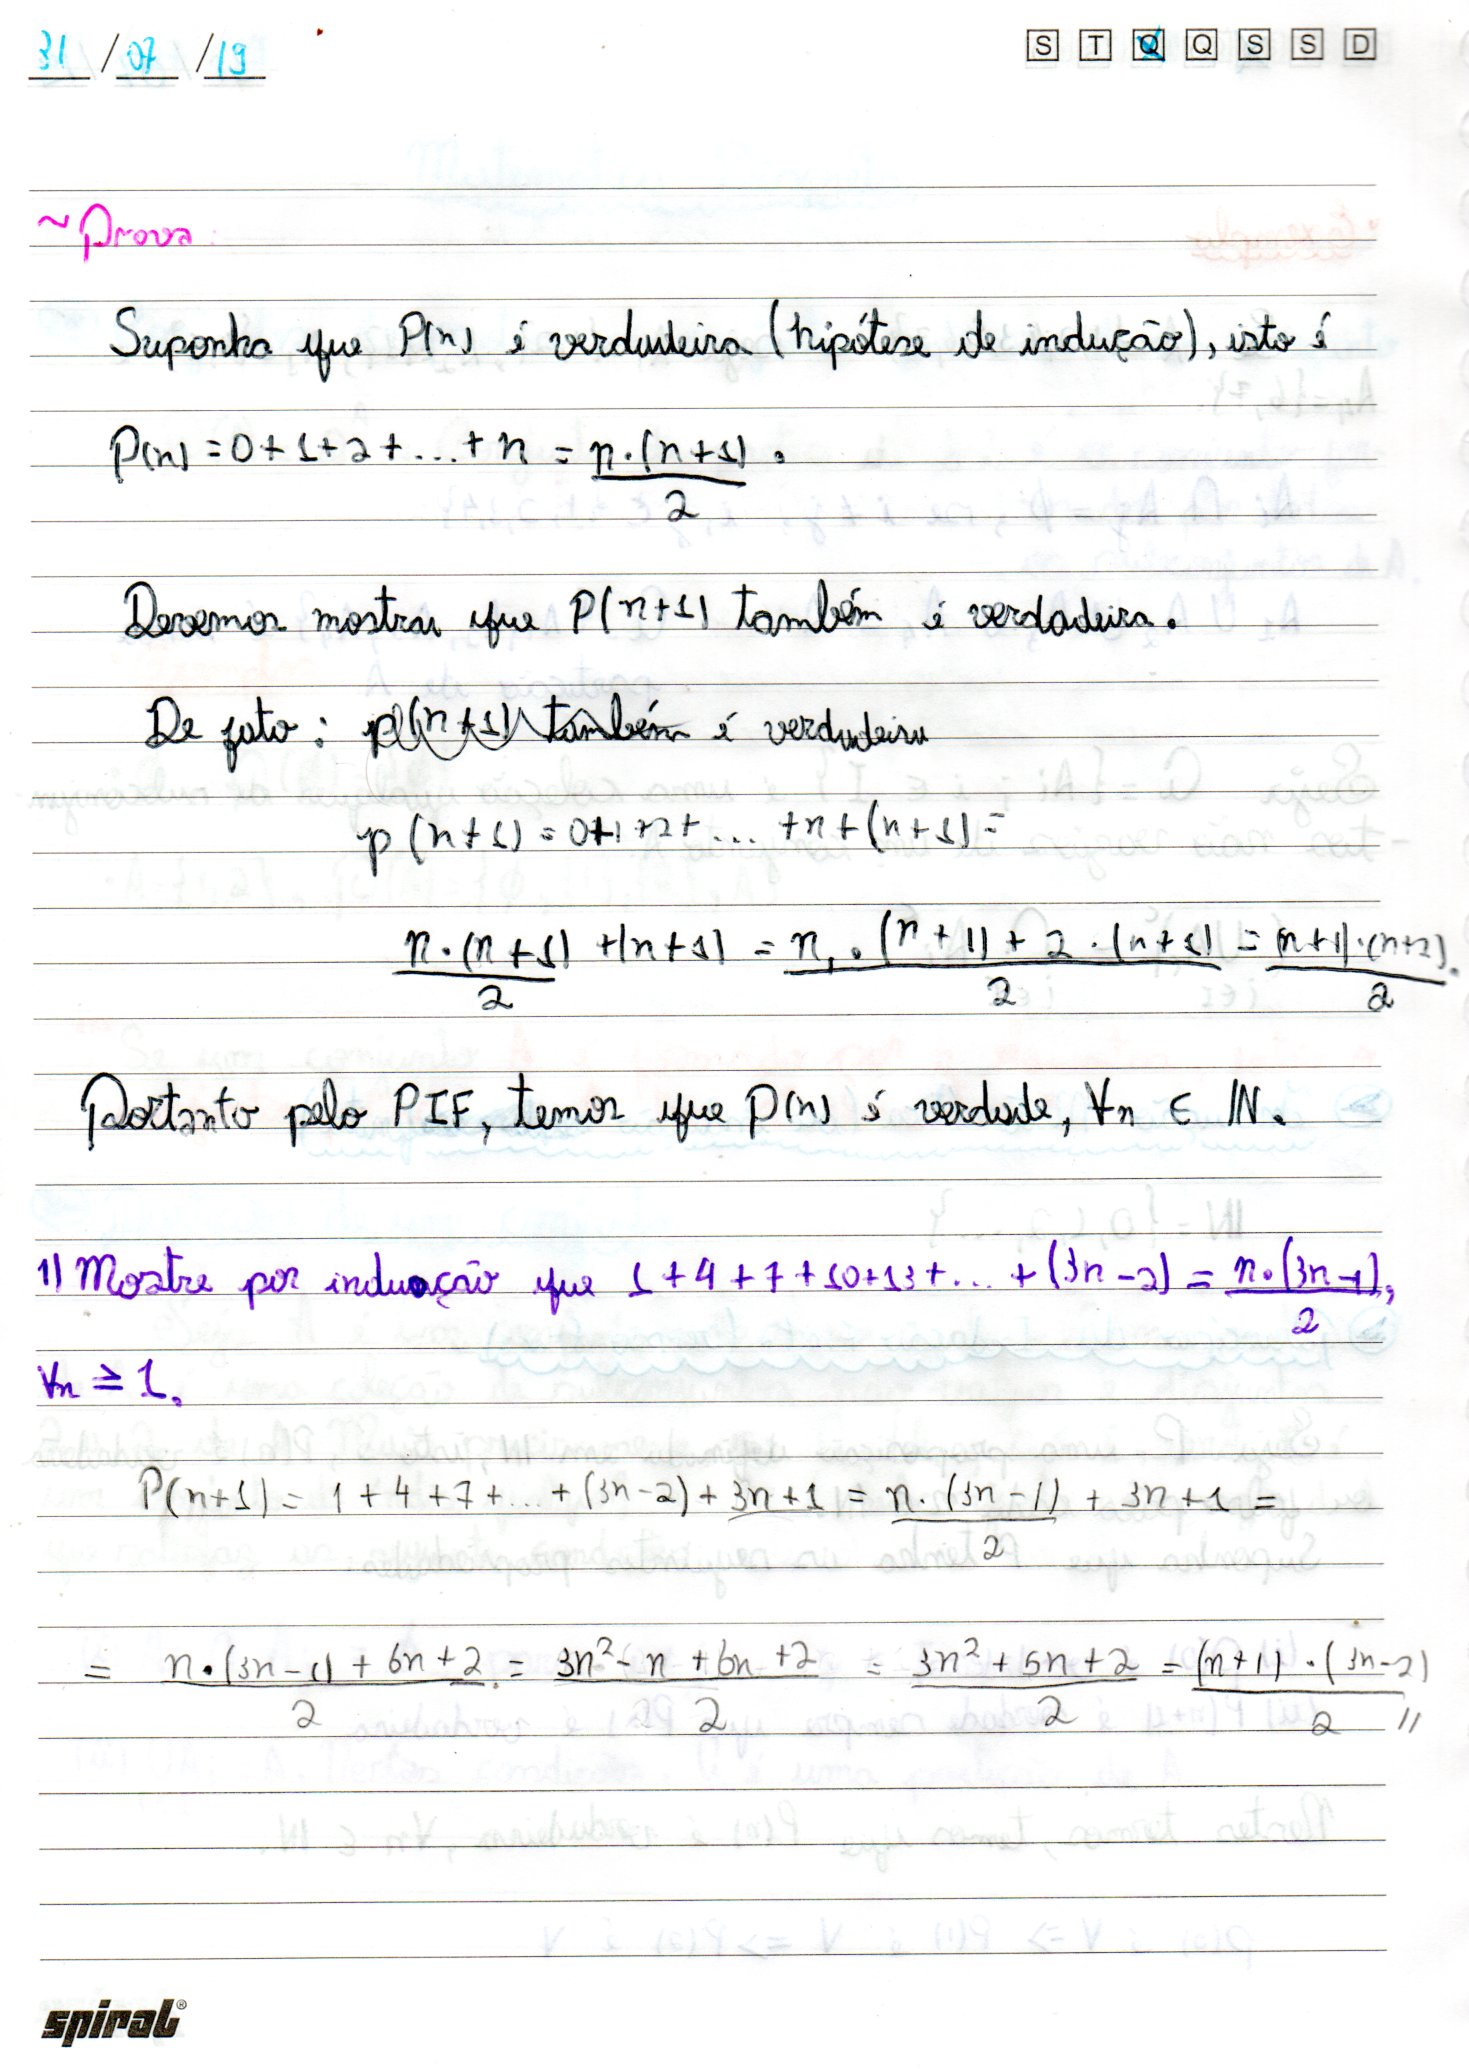 31 / 07 / 19
S T Q Q S S D
~ Prova:
Suponha que P(n) é verdadeira (hipótese de indução), isto é
P(n) = 0+1+2+...+n = n.(n+1)/2.
Devemos mostrar que P(n+1) também é verdadeira.
De fato: p(n+1) também é verdadeira
p(n+1) = 0+1+2+ ... +n+(n+1) =
n.(n+1)/2 +(n+1) = n.(n+1)+2.(n+1)/2 = (n+1).(n+2)/2.
Portanto pelo PIF, temos que P(n) é verdade, ∀n ∈ IN.
1) Mostre por indução que 1+4+7+10+13+...+(3n-2) = n.(3n-1)/2,
∀n ≥ 1.
P(n+1) = 1+4+7+...+(3n-2)+3n+1 = n.(3n-1)/2 + 3n+1 =
= n.(3n-1)+6n+2/2 = 3n²-n+6n+2/2 = 3n²+5n+2/2 = (n+1).(3n-2)/2 //
spiral®